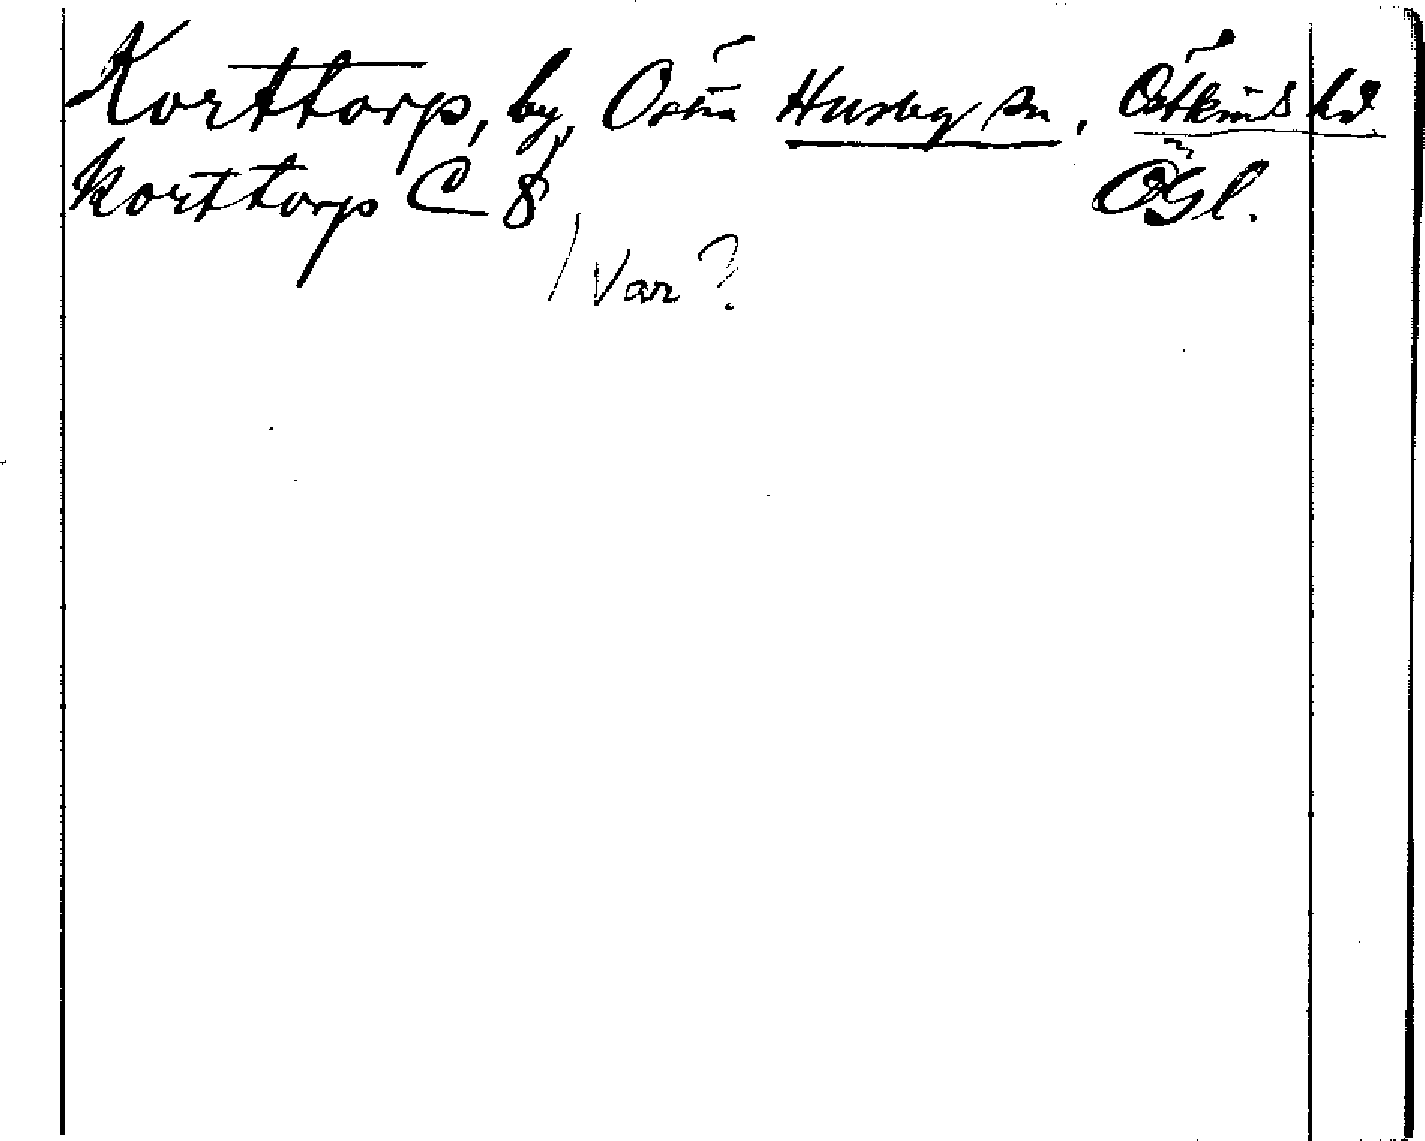 Korttorp, by, Östra Husby sn, Östkinds hd
Korttorp C 8 Ögl.
Var?